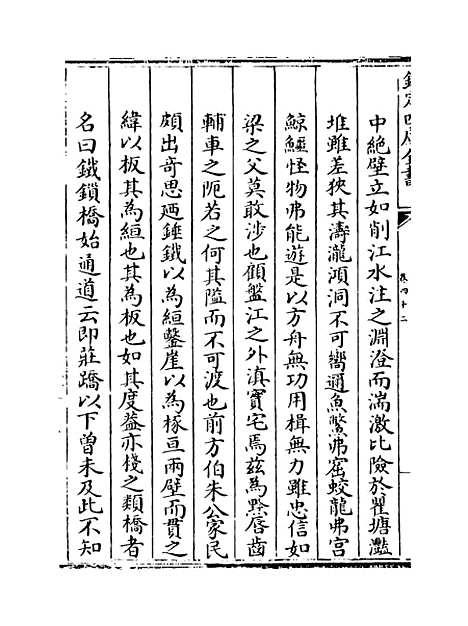 欽定四庫全書
卷四十二
中絶壁立如削江水注之淵澄而湍激比險於瞿塘灩
堆雖差狹其濤瀧澒洞不可嚮通魚鱉弗窟蛟龍弗宫
鯨鱷怪物弗能遊是以方舟無功用楫無力雖忠信如
梁之父莫敢涉也顧盤江之外滇實宅焉兹為黔唇齒
輔車之阨若之何其隘而不可渡也前方伯朱公家民
頗出奇思廼錘鐵以為絙鑿崖以為椓亘兩壁而貫之
緯以板其為絙也其為板也如其度蓋亦棧之類橋者
名曰鐵鎖橋始通道云即莊蹻以下曾未及此不知